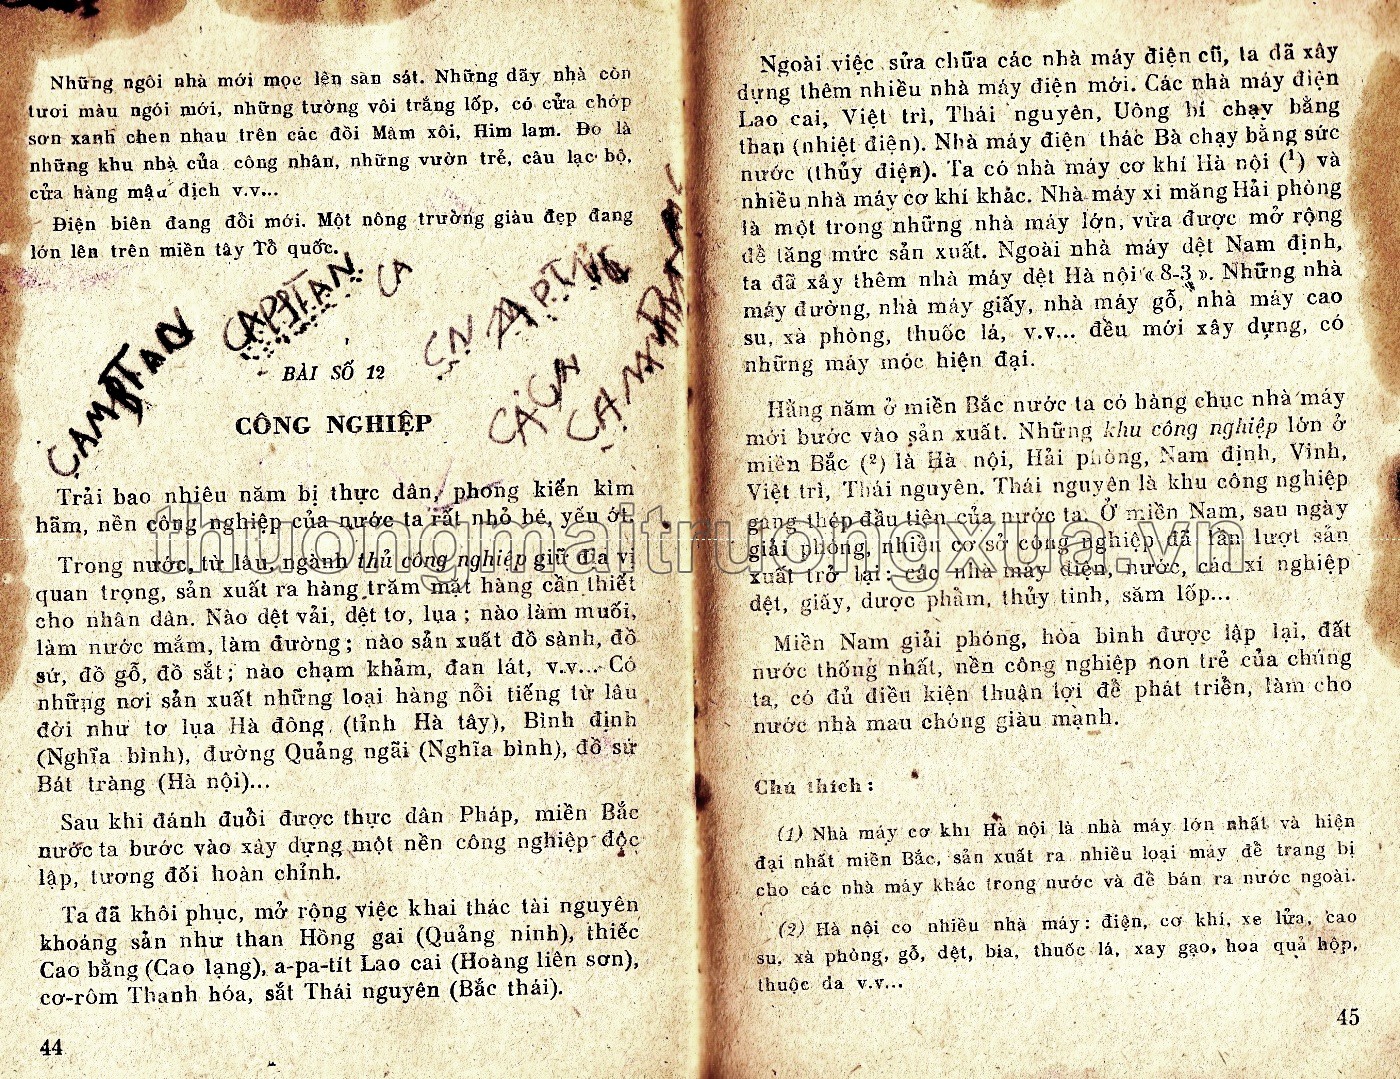 Những ngôi nhà mới mọc lên san sát. Những dãy nhà còn
tươi màu ngói mới, những tường vôi trắng lốp, có cửa chớp
sơn xanh chen nhau trên các đồi Mâm xôi, Him lam. Đo là
những khu nhà của công nhân, những vườn trẻ, câu lạc bộ,
cửa hàng mậu dịch v.v...
Điện biên đang đổi mới. Một nông trường giàu đẹp đang
lớn lên trên miền tây Tổ quốc.
CAPITAN
CA
BÀI SỐ 12
CÔNG NGHIỆP
Trải bao nhiêu năm bị thực dân, phong kiến kìm
hãm, nền công nghiệp của nước ta rất nhỏ bé, yếu ớt.
Trong nước, từ lâu, ngành thủ công nghiệp giữ địa vị
quan trọng, sản xuất ra hàng trăm mặt hàng cần thiết
cho nhân dân. Nào dệt vải, dệt tơ, lụa ; nào làm muối,
làm nước mắm, làm đường ; nào sản xuất đồ sành, đồ
sứ, đồ gỗ, đồ sắt ; nào chạm khảm, đan lát, v.v... Có
những nơi sản xuất những loại hàng nổi tiếng từ lâu
đời như tơ lụa Hà đông (tỉnh Hà tây), Bình định
(Nghĩa bình), đường Quảng ngãi (Nghĩa bình), đồ sứ
Bát tràng (Hà nội)...
Sau khi đánh đuổi được thực dân Pháp, miền Bắc
nước ta bước vào xây dựng một nền công nghiệp độc
lập, tương đối hoàn chỉnh.
Ta đã khôi phục, mở rộng việc khai thác tài nguyên
khoáng sản như than Hồng gai (Quảng ninh), thiếc
Cao bằng (Cao lạng), a-pa-tít Lao cai (Hoàng liên sơn),
cơ-rôm Thanh hóa, sắt Thái nguyên (Bắc thái).
44
Ngoài việc sửa chữa các nhà máy điện cũ, ta đã xây
dựng thêm nhiều nhà máy điện mới. Các nhà máy điện
Lao cai, Việt trì, Thái nguyên, Uông bí chạy bằng
than (nhiệt điện). Nhà máy điện thác Bà chạy bằng sức
nước (thủy điện). Ta có nhà máy cơ khí Hà nội (1) và
nhiều nhà máy cơ khí khác. Nhà máy xi măng Hải phòng
là một trong những nhà máy lớn, vừa được mở rộng
để tăng mức sản xuất. Ngoài nhà máy dệt Nam định,
ta đã xây thêm nhà máy dệt Hà nội « 8-3 ». Những nhà
máy đường, nhà máy giấy, nhà máy gỗ, nhà máy cao
su, xà phòng, thuốc lá, v.v... đều mới xây dựng, có
những máy móc hiện đại.
Hằng năm ở miền Bắc nước ta có hàng chục nhà máy
mới bước vào sản xuất. Những khu công nghiệp lớn ở
miền Bắc (2) là Hà nội, Hải phòng, Nam định, Vinh,
Việt trì, Thái nguyên. Thái nguyên là khu công nghiệp
gang thép đầu tiên của nước ta. Ở miền Nam, sau ngày
giải phóng, nhiều cơ sở công nghiệp đã lần lượt sản
xuất trở lại : các nhà máy điện, nước, các xí nghiệp
dệt, giấy, dược phẩm, thủy tinh, săm lốp...
Miền Nam giải phóng, hòa bình được lập lại, đất
nước thống nhất, nền công nghiệp non trẻ của chúng
ta, có đủ điều kiện thuận lợi để phát triển, làm cho
nước nhà mau chóng giàu mạnh.
Chú thích :
(1) Nhà máy cơ khí Hà nội là nhà máy lớn nhất và hiện
đại nhất miền Bắc, sản xuất ra nhiều loại máy để trang bị
cho các nhà máy khác trong nước và để bán ra nước ngoài.
(2) Hà nội co nhiều nhà máy : điện, cơ khí, xe lửa, cao
su, xà phòng, gỗ, dệt, bia, thuốc lá, xay gạo, hoa quả hộp,
thuộc da v.v...
45
thuongmaitruongxua.vn